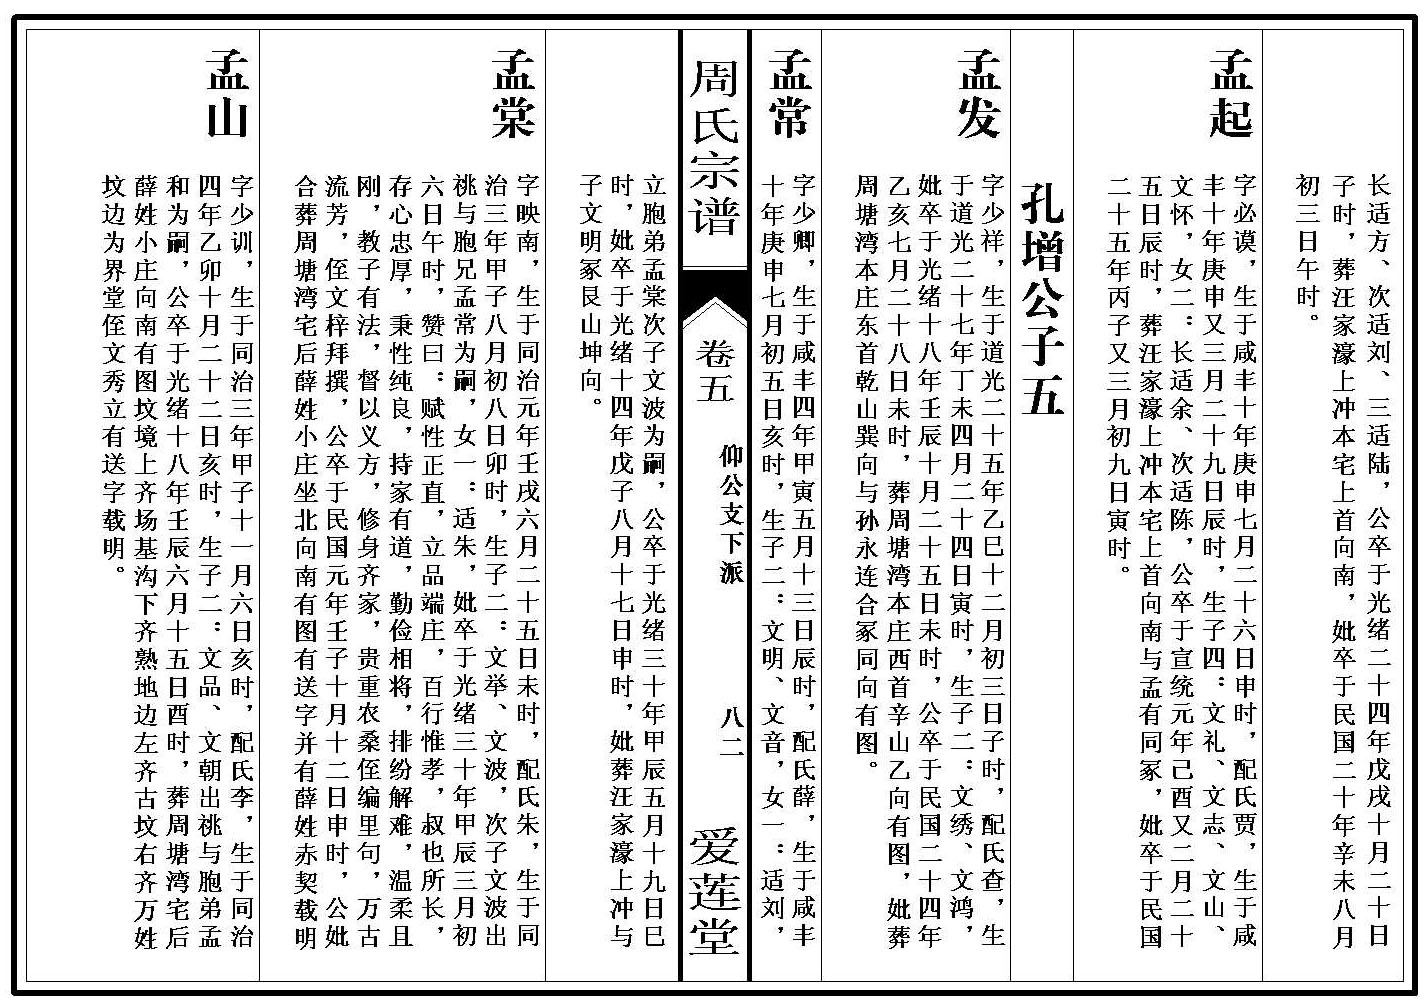 长适方、次适刘、三适陆，公卒于光绪二十四年戊戌十月二十日
子时，葬汪家濠上冲本宅上首向南，妣卒于民国二十年辛未八月
初三日午时。
孟起
字必谟，生于咸丰十年庚申七月二十六日申时，配氏贾，生于咸
丰十年庚申又三月二十九日辰时，生子四：文礼、文志、文山、
文怀，女二：长适余、次适陈，公卒于宣统元年己酉又二月二十
五日辰时，葬汪家濠上冲本宅上首向南与孟有同冢，妣卒于民国
二十五年丙子又三月初九日寅时。
孔增公子五
孟发
字少祥，生于道光二十五年乙巳十二月初三日子时，配氏查，生
于道光二十七年丁未四月二十四日寅时，生子二：文绣、文鸿，
妣卒于光绪十八年壬辰十月二十五日未时，公卒于民国二十四年
乙亥七月二十八日未时，葬周塘湾本庄西首辛山乙向有图，妣葬
周塘湾本庄东首乾山巽向与孙永连合冢同向有图。
孟常
字少卿，生于咸丰四年甲寅五月十三日辰时，配氏薛，生于咸丰
十年庚申七月初五日亥时，生子二：文明、文音，女一：适刘，
周氏宗谱
卷五
仰公支下派
八二
爱莲堂
立胞弟孟棠次子文波为嗣，公卒于光绪三十年甲辰五月十九日巳
时，妣卒于光绪十四年戊子八月十七日申时，妣葬汪家濠上冲与
子文明冢艮山坤向。
孟棠
字映南，生于同治元年壬戌六月二十五日未时，配氏朱，生于同
治三年甲子八月初八日卯时，生子二：文举、文波，次子文波出
祧与胞兄孟常为嗣，女一：适朱，妣卒于光绪三十年甲辰三月初
六日午时，赞曰：赋性正直，立品端庄，百行惟孝，叔也所长，
存心忠厚，秉性纯良，持家有道，勤俭相将，排纷解难，温柔且
刚，教子有法，督以义方，修身齐家，贵重农桑侄编里句，万古
流芳，侄文梓拜撰，公卒于民国元年壬子十月十二日申时，公妣
合葬周塘湾宅后薛姓小庄坐北向南有图有送字并有薛姓赤契载明
孟山
字少训，生于同治三年甲子十一月六日亥时，配氏李，生于同治
四年乙卯十月二十二日亥时，生子二：文品、文朝出祧与胞弟孟
和为嗣，公卒于光绪十八年壬辰六月十五日酉时，葬周塘湾宅后
薛姓小庄向南有图坟境上齐场基沟下齐熟地边左齐古坟右齐万姓
坟边为界堂侄文秀立有送字载明。